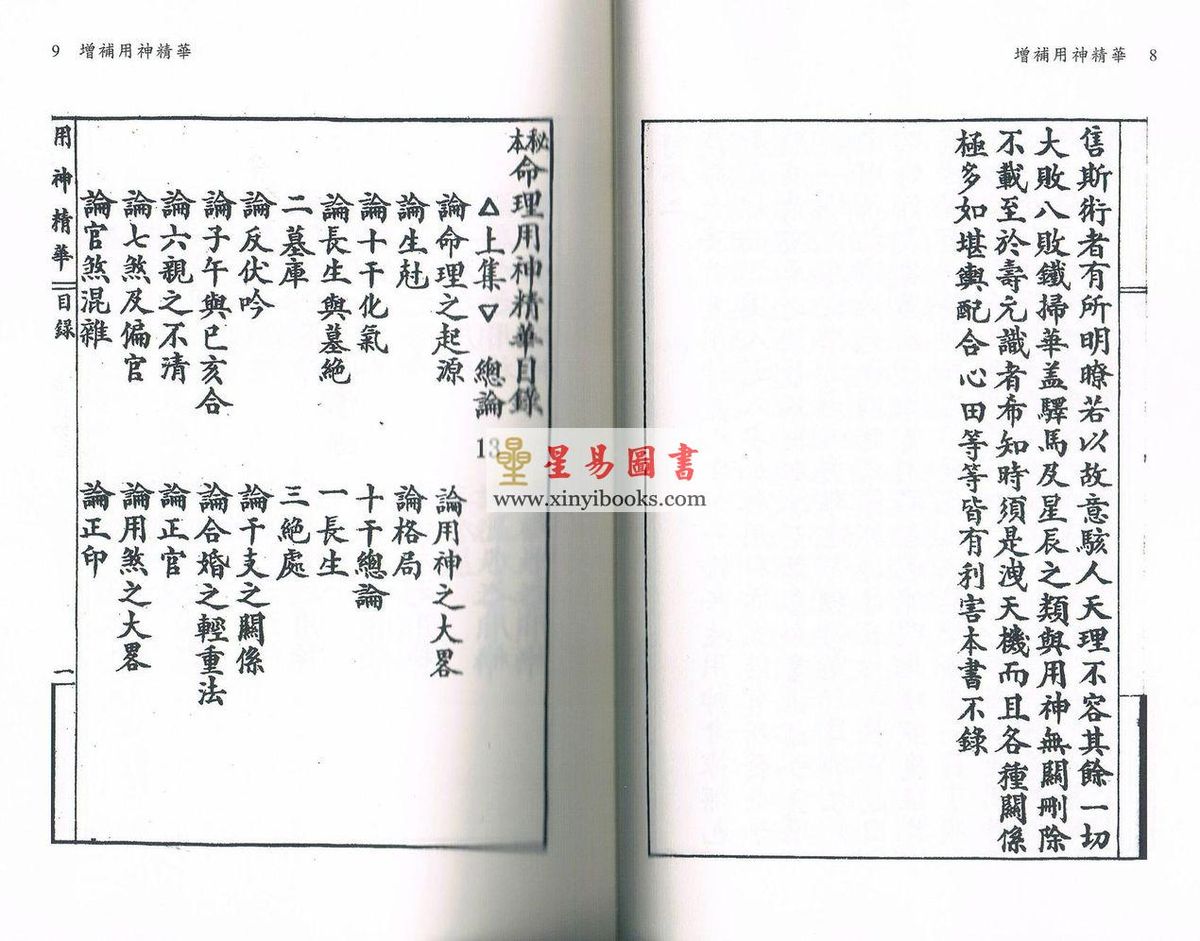 增補用神精華 8
售斯術者有所明瞭若以故意駭人天理不容其餘一切
大敗八敗鐵掃華盖驛馬及星辰之類與用神無關刪除
不載至於壽元識者希知時須是洩天機而且各種關係
極多如堪輿配合心田等等皆有利害本書不錄
9 增補用神精華
秘本命理用神精華目錄
△上集▽ 總論 13
論命理之起源 論用神之大畧
論生尅 論格局
論十干化氣 十干總論
論長生與墓絕 一長生
二墓庫 三絕處
論反伏吟 論干支之關係
論子午與巳亥合 論合婚之輕重法
論六親之不清 論正官
論七煞及偏官 論用煞之大畧
論官煞混雜 論正印
用神精華 目錄 一
星易圖書
www.xinyibooks.com